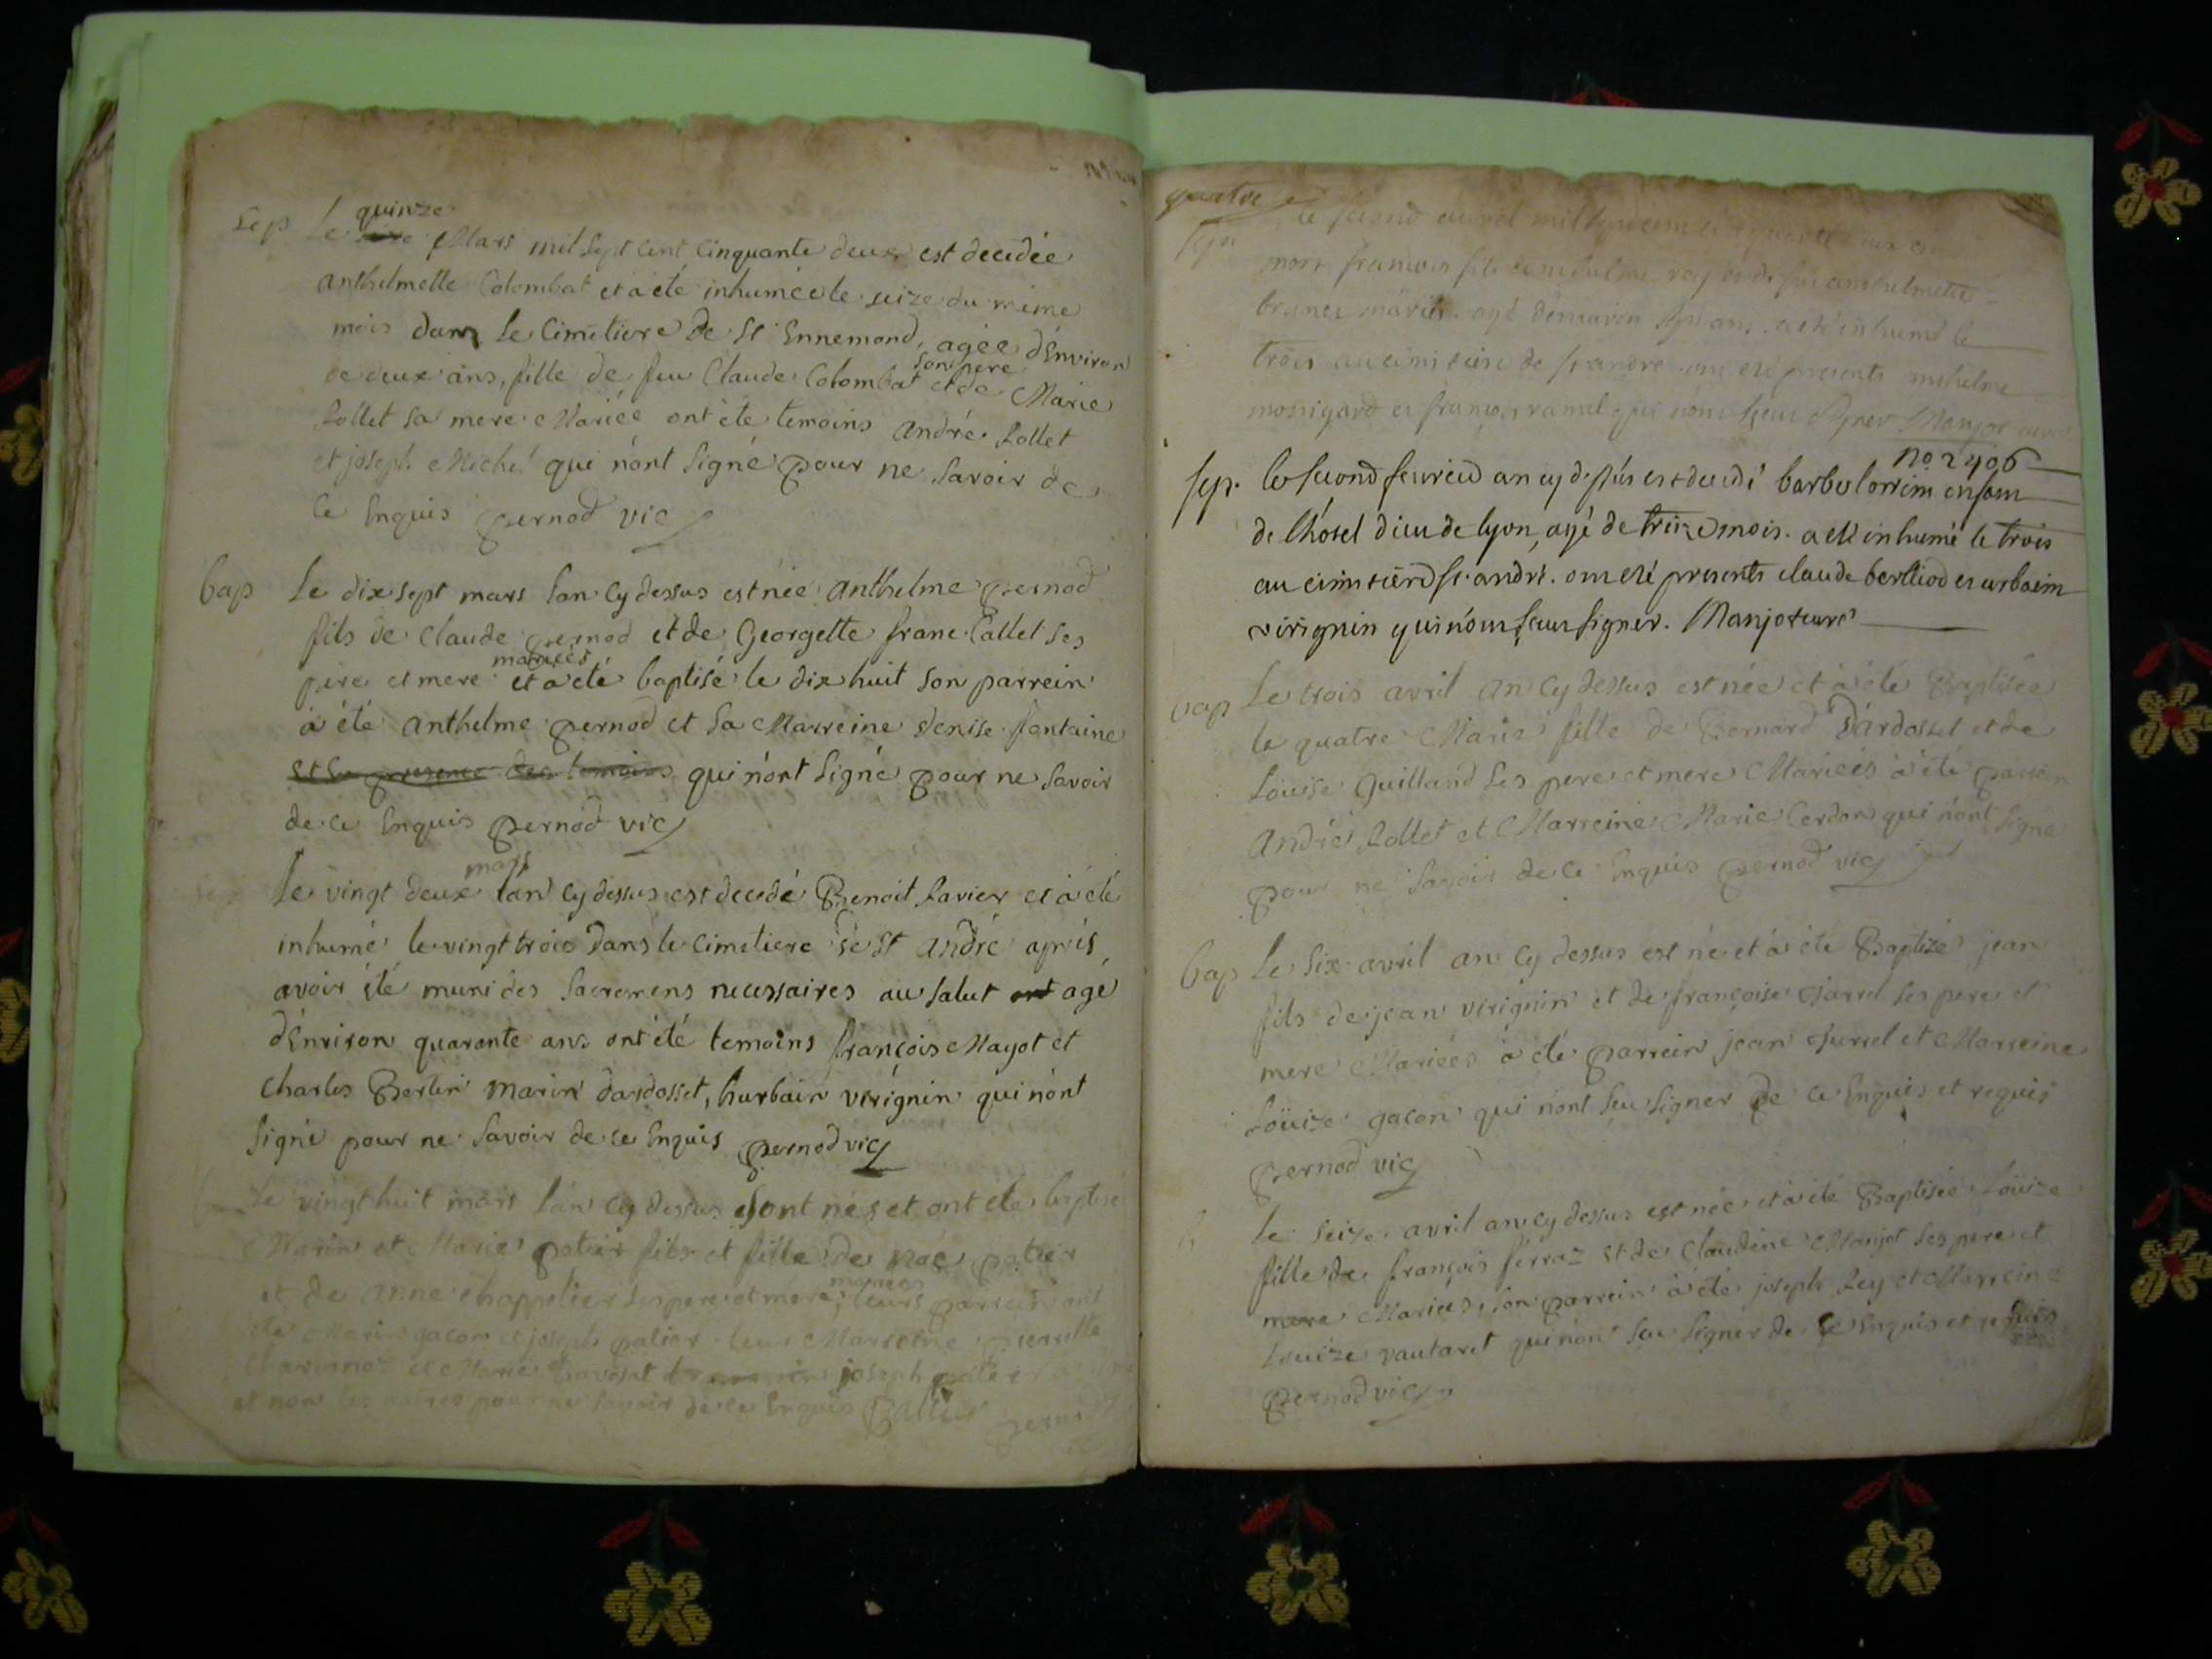 quinze
Sep Le Mars mil Sept cent Cinquante deux est decedée
Anthelmette Colombat et à été inhumée le seize du même
mois dans le Cimetiere de St Ennemond, agée d'Environ
son pere
de deux ans, fille de feu Claude Colombat et de Marie
Rollet sa mere Mariée ont été temoins André Rollet
et joseph Michel qui n'ont Signé pour ne Savoir de
Ce Enquis pernod vic
bap Le dix sept mars l'an Cy dessus est née Anthelme pernod
fils de Claude pernod et de Georgette franc Callet Ses
mariéés
pere et mere et a eté baptisé le dix huit Son parrein
à été Anthelme pernod et Sa Marreine denise fontaine
et en presence des temoins qui n'ont Signé pour ne Savoir
de ce Enquis pernod vic
mars
Sep Le vingt deux l'an Cy dessus est decedé Benoit Ravier et à été
inhumé le vingt trois dans le Cimetiere de St André aprés
avoir été muni des Sacremens necessaires au Salut ont agé
d'Environ quarante ans ont été temoins françois Mayot et
Charles Bertin Marin dardosset, hurbain virignin qui n'ont
Signé pour ne Savoir de ce Enquis pernod vic
b Le vingt huit mars l'an Cy dessus Sont nés et ont été baptisé
Marin et Marie patier fils et fille de patier
mariees
et de Anne Chappelier Ses pere et mere, leurs parrein ont
été Marin gacon et joseph patier leur Marreine pierrette
et Marie joseph patier a
et non les autres pour ne Savoir de ce Enquis
quatre
Sep. le second avril mil Sept cent
mort francois fils rey et de
agé d'environ ans. a eté inhumé le
trois au cimetiere de St andre. ont eté presents
et francois ramel qui n'ont sceu signer Manjot curé
No. 2406
sep. le second fevrier an cy dessus est decedé enfan
de l'hotel dieu de lyon, agé de treize mois. a eté inhumé le trois
au cimetiere St. andré. ont eté presents claude berlliod et urbain
virignin qui n'ont sceu signer. Manjot curé
bap Le trois avril an Cy dessus est née et à été Baptisée
le quatre Marie fille de Bernard Dardosset et de
Loüise Guilland Ses pere et mere Mariéés à été parrein
André Rollet et Marreine Marie Cerdon qui n'ont Signé
pour ne Savoir de Ce Enquis pernod vic
bap Le Six avril an Cy dessus est né et à été Baptizé jean
fils de jean virignin et de françoise Ses pere et
mere Mariéés à été parrein jean et Marreine
Loüize gacon qui n'ont Seu Signer de Ce Enquis et requis
pernod vic
b Le Seize avril an Cy dessus est née et à été Baptisée Loüize
fille de françois ferraz et de Claudine Manjot Ses pere et
mere Mariéés, Son parrein à été joseph Rey et Marreine
Louize vautaret qui n'ont Seu Signer de Ce Enquis et
pernod vic